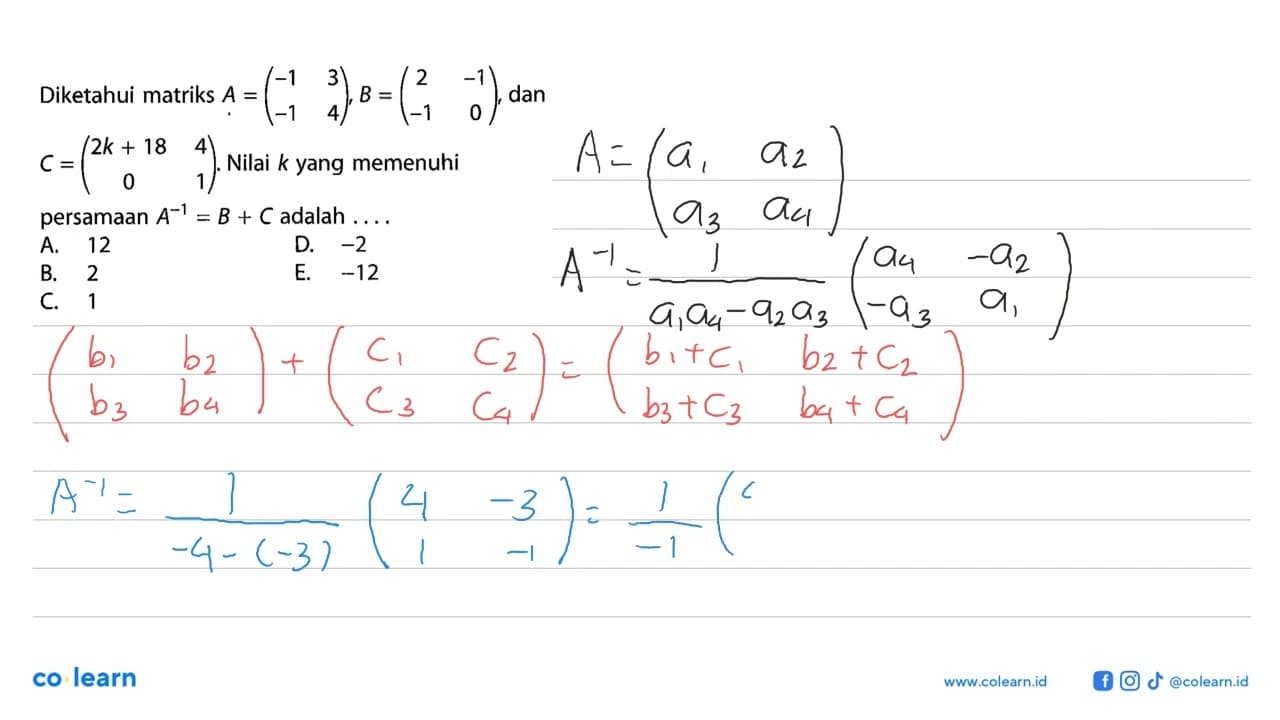 Diketahui matriks A = (−1 3 −1 4), B = (2 −1 −1 0), dan
C = (2k + 18 4 0 1). Nilai k yang memenuhi
persamaan A⁻¹ = B + C adalah ....
A. 12 D. −2
B. 2 E. −12
C. 1
A = (a₁ a₂
a₃ a₄)
A⁻¹ = 1/(a₁a₄ − a₂a₃) (a₄ −a₂
−a₃ a₁)
(b₁ b₂ b₃ b₄) + (c₁ c₂ c₃ c₄) = (b₁+c₁ b₂+c₂ b₃+c₃ b₄+c₄)
A⁻¹ = 1/(−4−(−3)) (4 −3 1 −1) = 1/−1 (
co learn
www.colearn.id @colearn.id